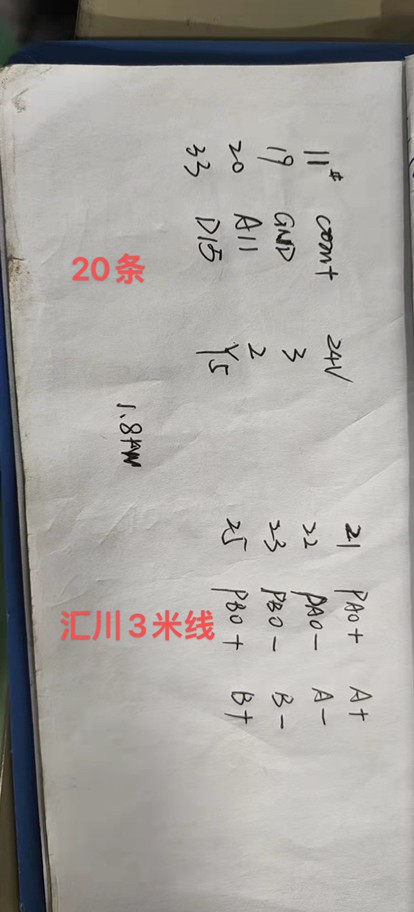 11# com+ 24V
19 GND 3
20 AI1 2
33 DI5 Y5
20条
1.8kW
21 PAO+ A+
22 PAO- A-
23 PBO- B-
25 PBO+ B+
汇川3米线